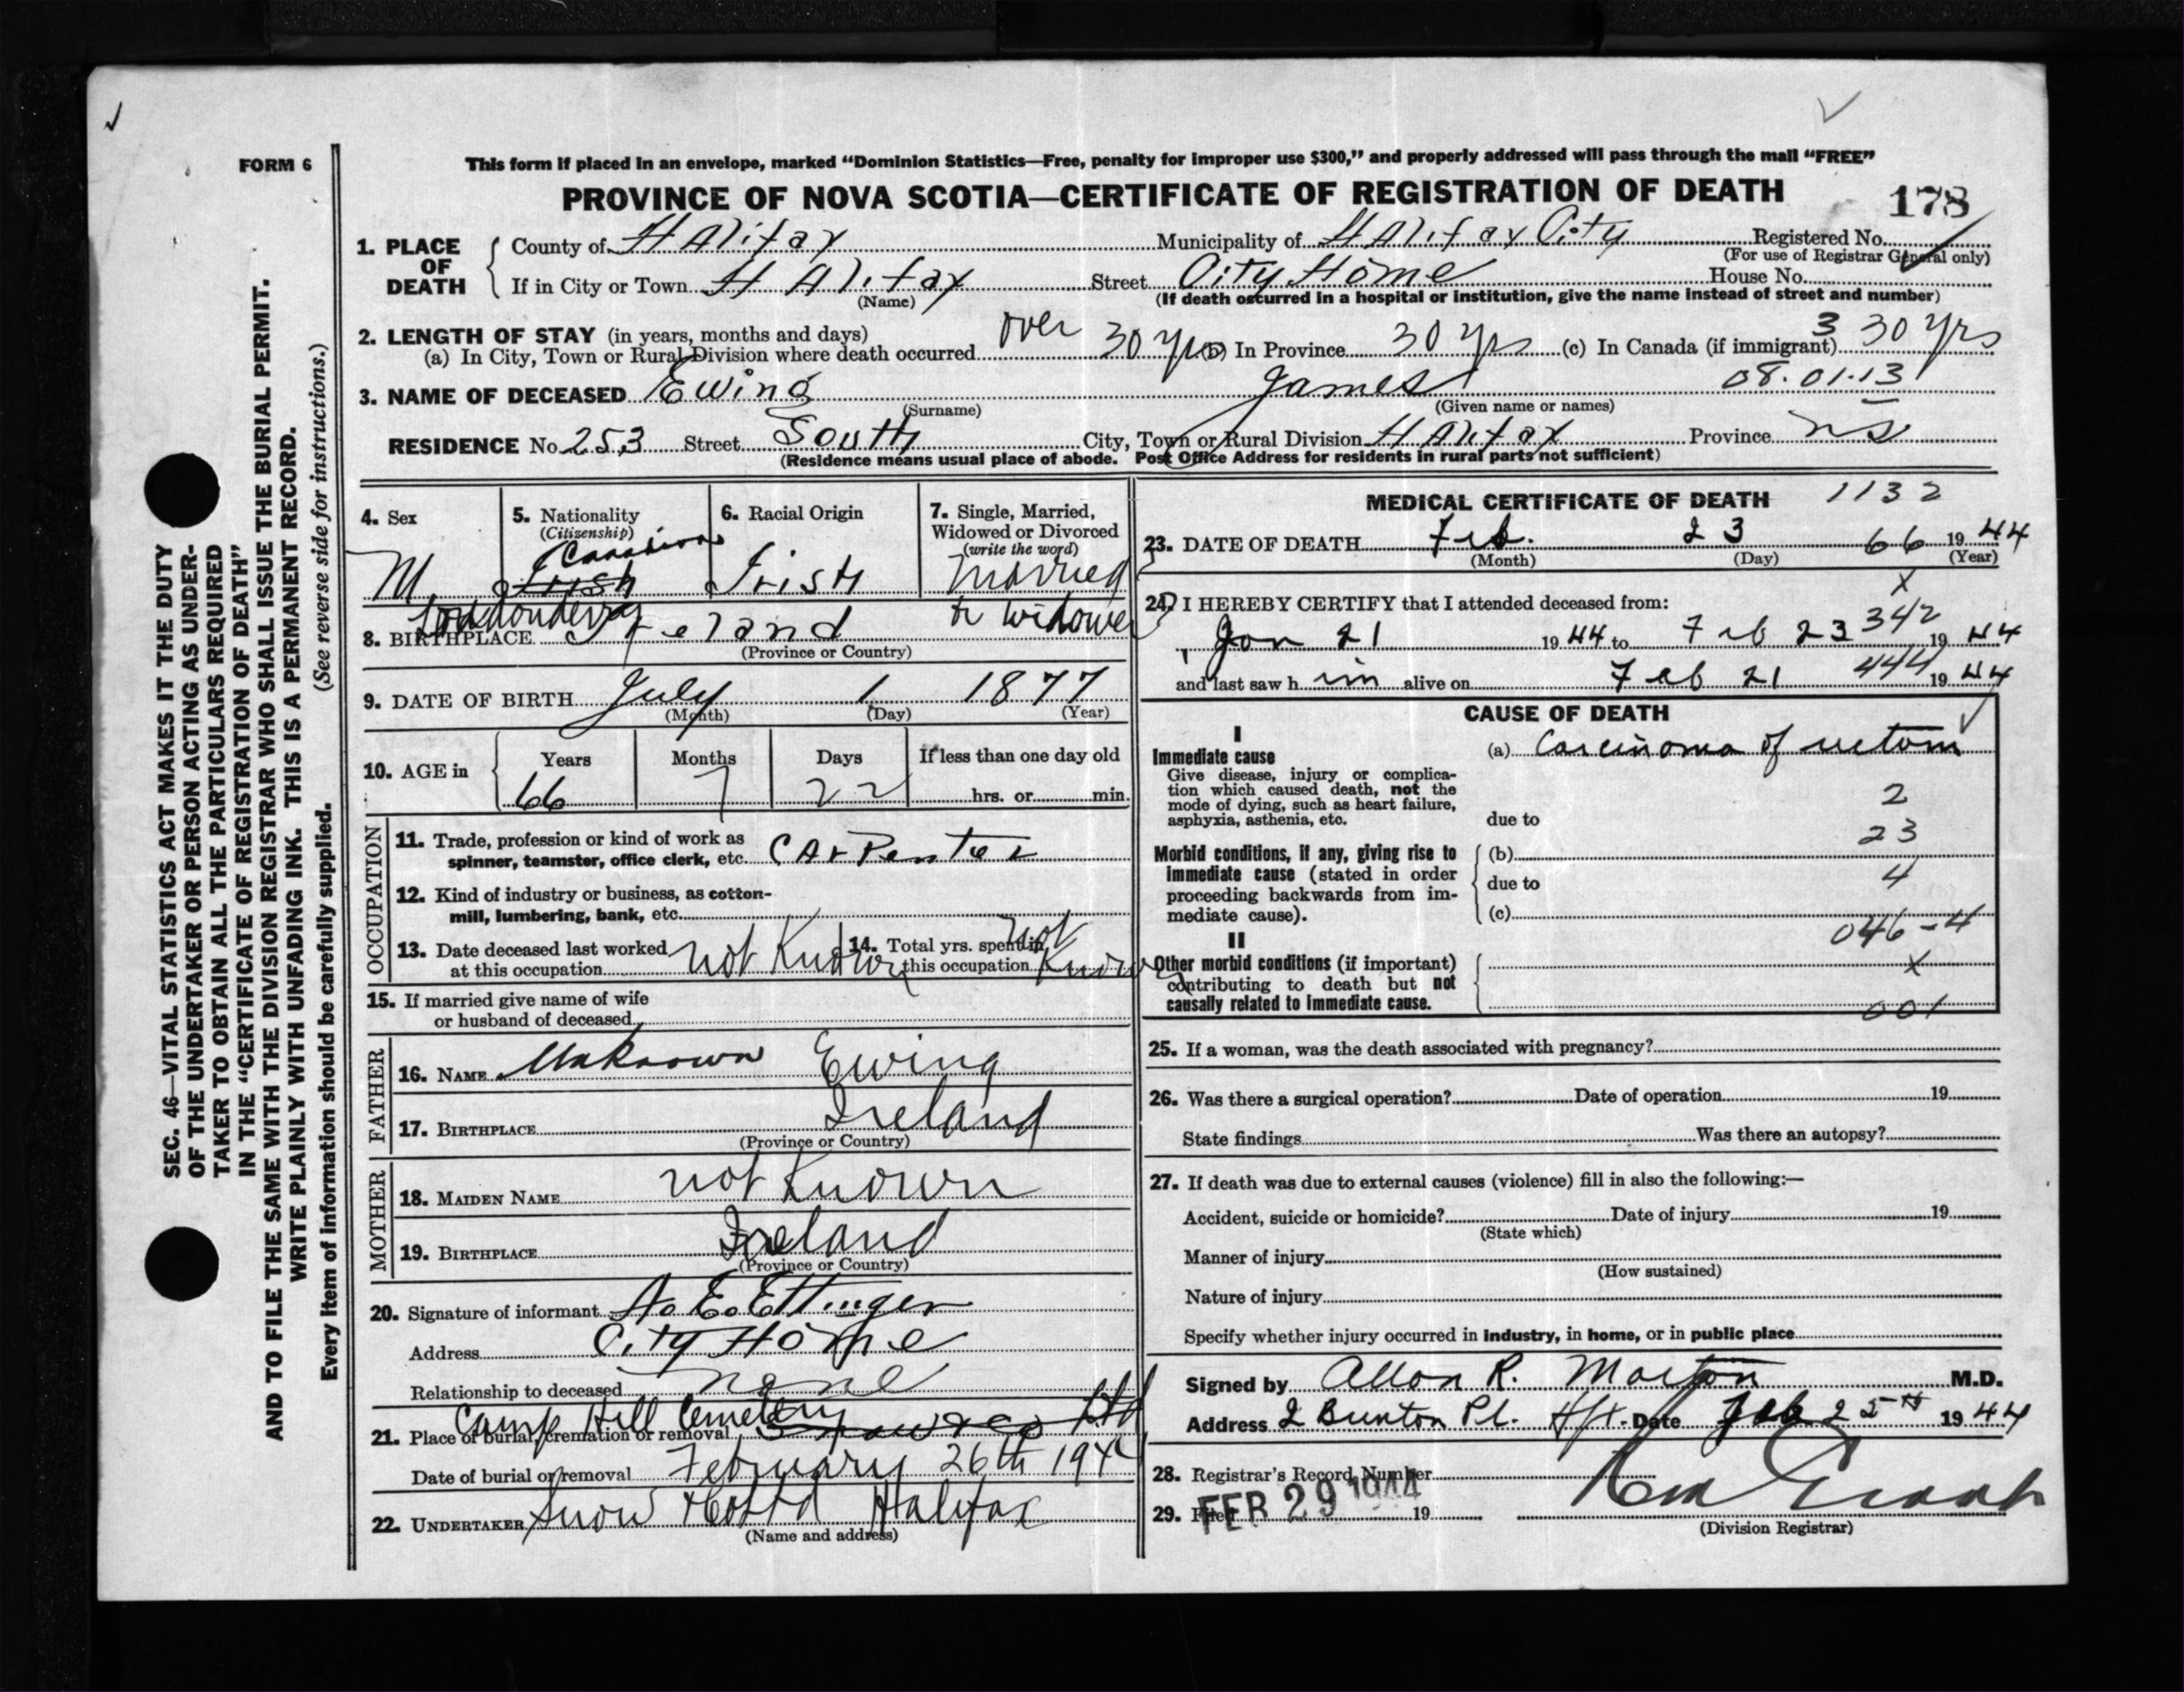 FORM 6
This form if placed in an envelope, marked “Dominion Statistics—Free, penalty for improper use $300,” and properly addressed will pass through the mail “FREE”
PROVINCE OF NOVA SCOTIA—CERTIFICATE OF REGISTRATION OF DEATH
178
1. PLACE OF DEATH
County of Halifax Municipality of Halifax City Registered No.
(For use of Registrar General only)
If in City or Town Halifax Street City Home House No.
(Name) (If death occurred in a hospital or institution, give the name instead of street and number)
2. LENGTH OF STAY (in years, months and days)
(a) In City, Town or Rural Division where death occurred over 30 yrs (b) In Province 30 yrs (c) In Canada (if immigrant) 3 30 yrs
08.01.13
3. NAME OF DECEASED Ewing James
(Surname) (Given name or names)
RESIDENCE No. 253 Street South City, Town or Rural Division Halifax Province NS
(Residence means usual place of abode. Post Office Address for residents in rural parts not sufficient)
4. Sex M
5. Nationality (Citizenship) Canadian Irish
6. Racial Origin Irish
7. Single, Married, Widowed or Divorced (write the word) Married or Widower
8. BIRTHPLACE Londonderry Ireland
(Province or Country)
9. DATE OF BIRTH July 1 1877
(Month) (Day) (Year)
10. AGE in Years 66 Months 7 Days 22 If less than one day old hrs. or min.
OCCUPATION
11. Trade, profession or kind of work as spinner, teamster, office clerk, etc. Carpenter
12. Kind of industry or business, as cotton-mill, lumbering, bank, etc.
13. Date deceased last worked at this occupation not Known
14. Total yrs. spent in this occupation not Known
15. If married give name of wife or husband of deceased
FATHER
16. NAME Unknown Ewing
17. BIRTHPLACE Ireland
(Province or Country)
MOTHER
18. MAIDEN NAME not Known
19. BIRTHPLACE Ireland
(Province or Country)
20. Signature of informant A. E. Ettinger
Address City Home
Relationship to deceased none
21. Place of burial, cremation or removal Camp Hill Cemetery
Date of burial or removal February 26th 194
22. UNDERTAKER Snow & Co Ltd Halifax
(Name and address)
MEDICAL CERTIFICATE OF DEATH 1132
23. DATE OF DEATH Feb. 23 66 1944
(Month) (Day) (Year)
x
24. I HEREBY CERTIFY that I attended deceased from:
Jan 21 1944 to Feb 23 342 1944
and last saw him alive on Feb 21 444 1944
CAUSE OF DEATH
I
Immediate cause
Give disease, injury or complication which caused death, not the mode of dying, such as heart failure, asphyxia, asthenia, etc.
(a) Carcinoma of rectum
2
due to
23
Morbid conditions, if any, giving rise to immediate cause (stated in order proceeding backwards from immediate cause).
(b)
due to 4
(c)
046-4
II
Other morbid conditions (if important) contributing to death but not causally related to immediate cause.
x
001
25. If a woman, was the death associated with pregnancy?
26. Was there a surgical operation? Date of operation 19
State findings Was there an autopsy?
27. If death was due to external causes (violence) fill in also the following:—
Accident, suicide or homicide? Date of injury 19
(State which)
Manner of injury
(How sustained)
Nature of injury
Specify whether injury occurred in industry, in home, or in public place
Signed by Allan R. Morton M.D.
Address 2 Burton Pl. Hfx. Date Feb 25th 1944
28. Registrar's Record Number
29. Filed FEB 29 1944 19
(Division Registrar)
SEC. 46—VITAL STATISTICS ACT MAKES IT THE DUTY
OF THE UNDERTAKER OR PERSON ACTING AS UNDER-
TAKER TO OBTAIN ALL THE PARTICULARS REQUIRED
IN THE “CERTIFICATE OF REGISTRATION OF DEATH”
AND TO FILE THE SAME WITH THE DIVISION REGISTRAR WHO SHALL ISSUE THE BURIAL PERMIT.
WRITE PLAINLY WITH UNFADING INK. THIS IS A PERMANENT RECORD.
Every item of information should be carefully supplied. (See reverse side for instructions.)